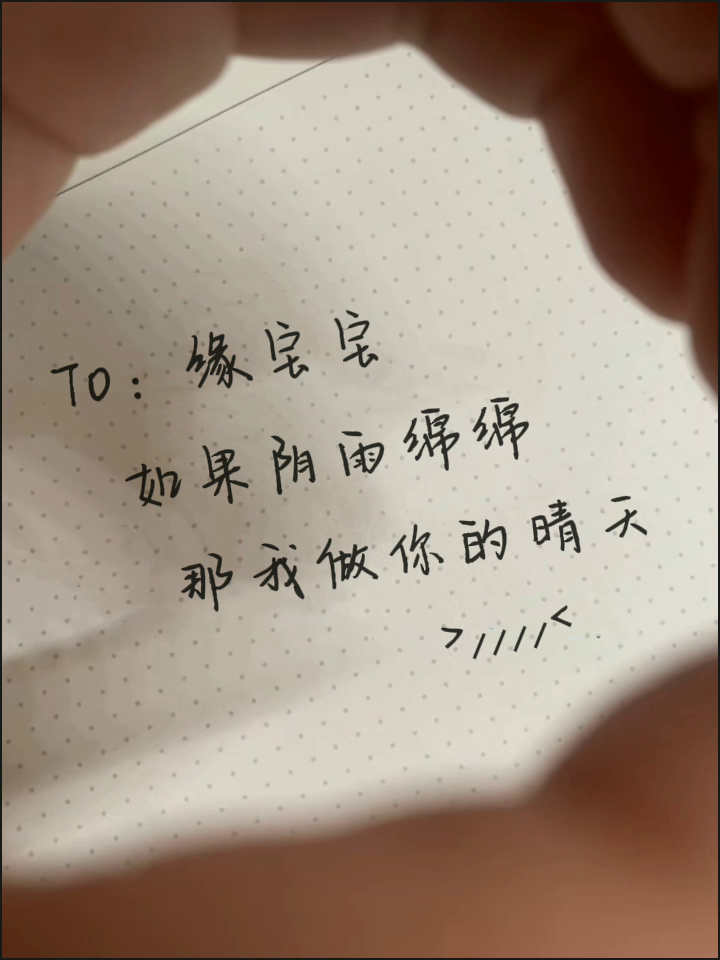 To：缘宝宝
如果阴雨绵绵
那我做你的晴天
>////<